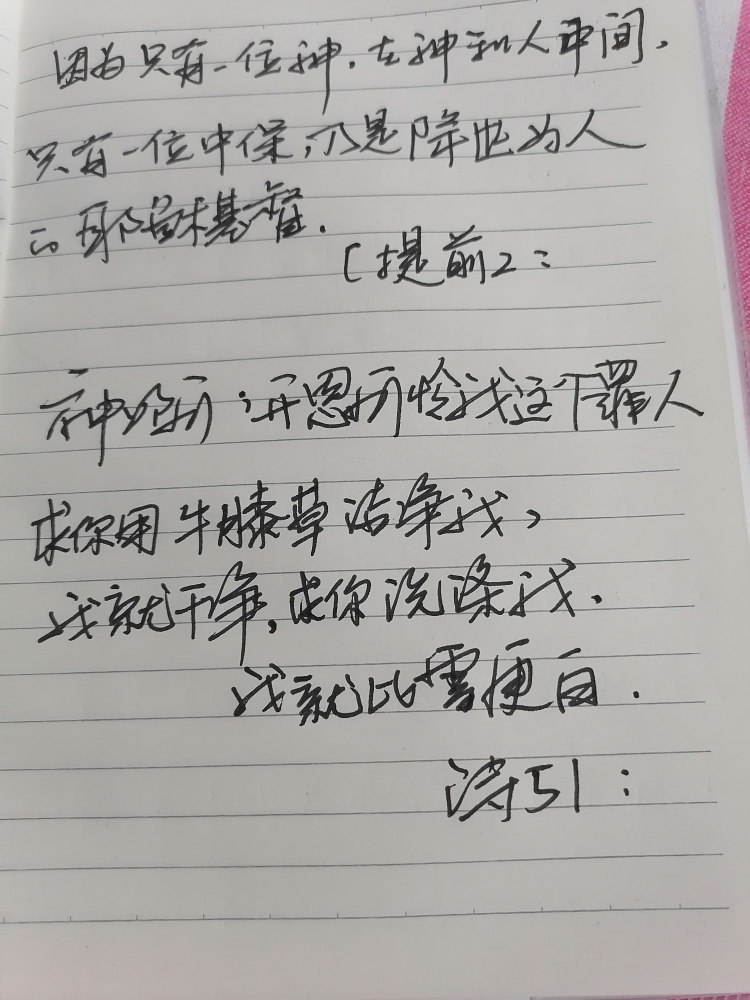 因为只有一位神.在神和人中间,
只有一位中保,乃是降世为人
的耶稣基督.
(提前2:
神啊;开恩可怜我这个罪人
求你用牛膝草洁净我,
我就干净,求你洗涤我.
我就比雪更白.
诗51: